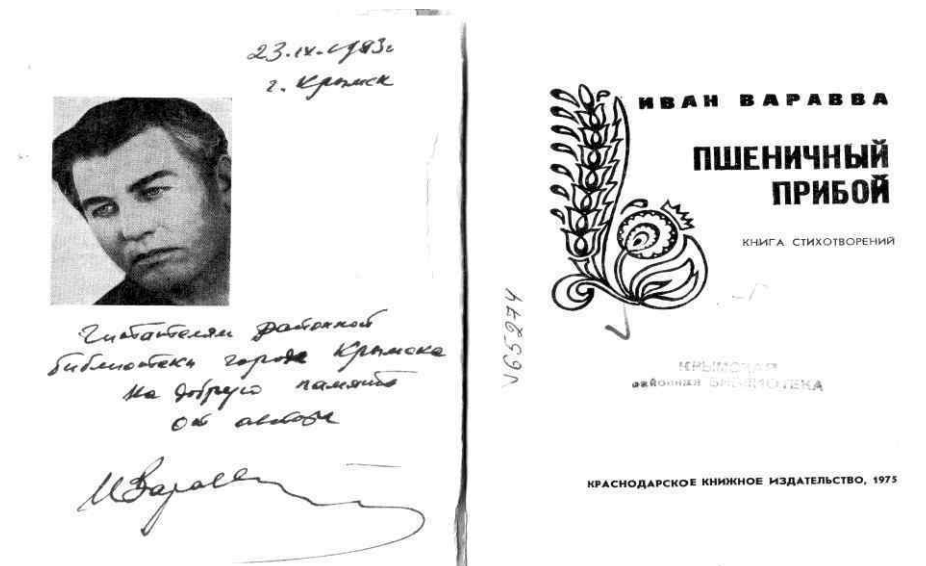 23.IX.1983г
г. Крымск
Читателям районной
библиотеки города Крымска
на добрую память
от автора
ИВаравва
ИВАН ВАРАВВА
ПШЕНИЧНЫЙ
ПРИБОЙ
КНИГА СТИХОТВОРЕНИЙ
№65274
КРЫМСКАЯ
районная БИБЛИОТЕКА
КРАСНОДАРСКОЕ КНИЖНОЕ ИЗДАТЕЛЬСТВО, 1975